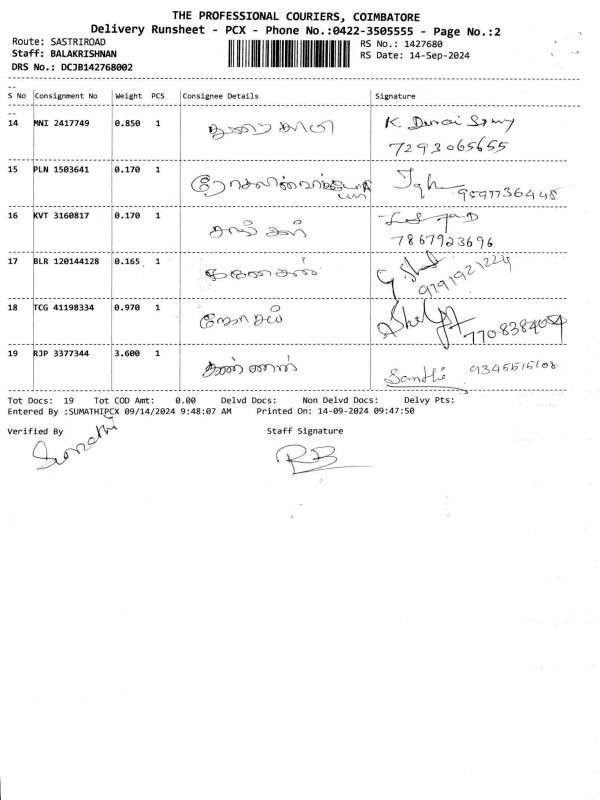 THE PROFESSIONAL COURIERS, COIMBATORE
Delivery Runsheet - PCX - Phone No.:0422-3505555 - Page No.:2
Route: SASTRIROAD
RS No.: 1427680
Staff: BALAKRISHNAN
RS Date: 14-Sep-2024
DRS No.: DCJB142768002
S No Consignment No Weight PCS Consignee Details Signature
14 MNI 2417749 0.850 1 துரைசாமி K. Durai Samy
7293065655
15 PLN 1503641 0.170 1
16 KVT 3160817 0.170 1 சங்கர்
7867923696
17 BLR 120144128 0.165 1 கணேசன் 9791921224
18 TCG 41198334 0.970 1 7708384054
19 RJP 3377344 3.600 1 கண்ணன் Santhi 9345515108
Tot Docs: 19 Tot COD Amt: 0.00 Delvd Docs: Non Delvd Docs: Delvy Pts:
Entered By :SUMATHIPCX 09/14/2024 9:48:07 AM Printed On: 14-09-2024 09:47:50
Verified By Staff Signature
Sumathi RB